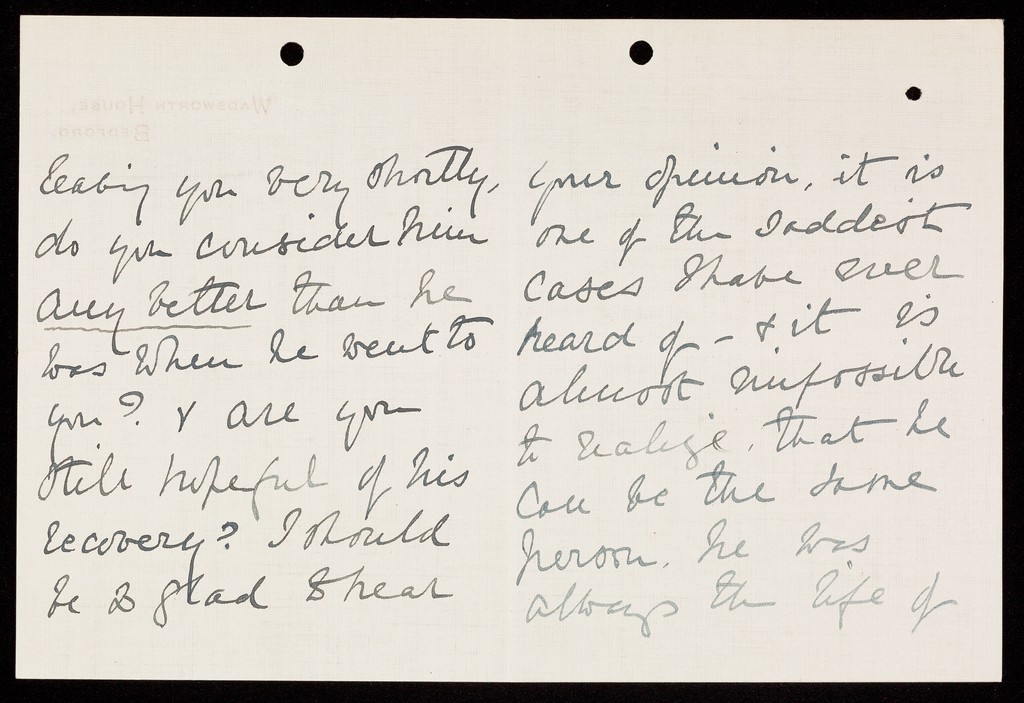 leaving you very shortly,
do you consider him
any better than he
was when he went to
you? & are you
still hopeful of his
recovery? I should
be so glad to hear
your opinion, it is
one of the saddest
cases I have ever
heard of - & it is
almost impossible
to realize, that he
can be the same
person. he was
always the life of
WADSWORTH HOUSE,
BEDFORD.